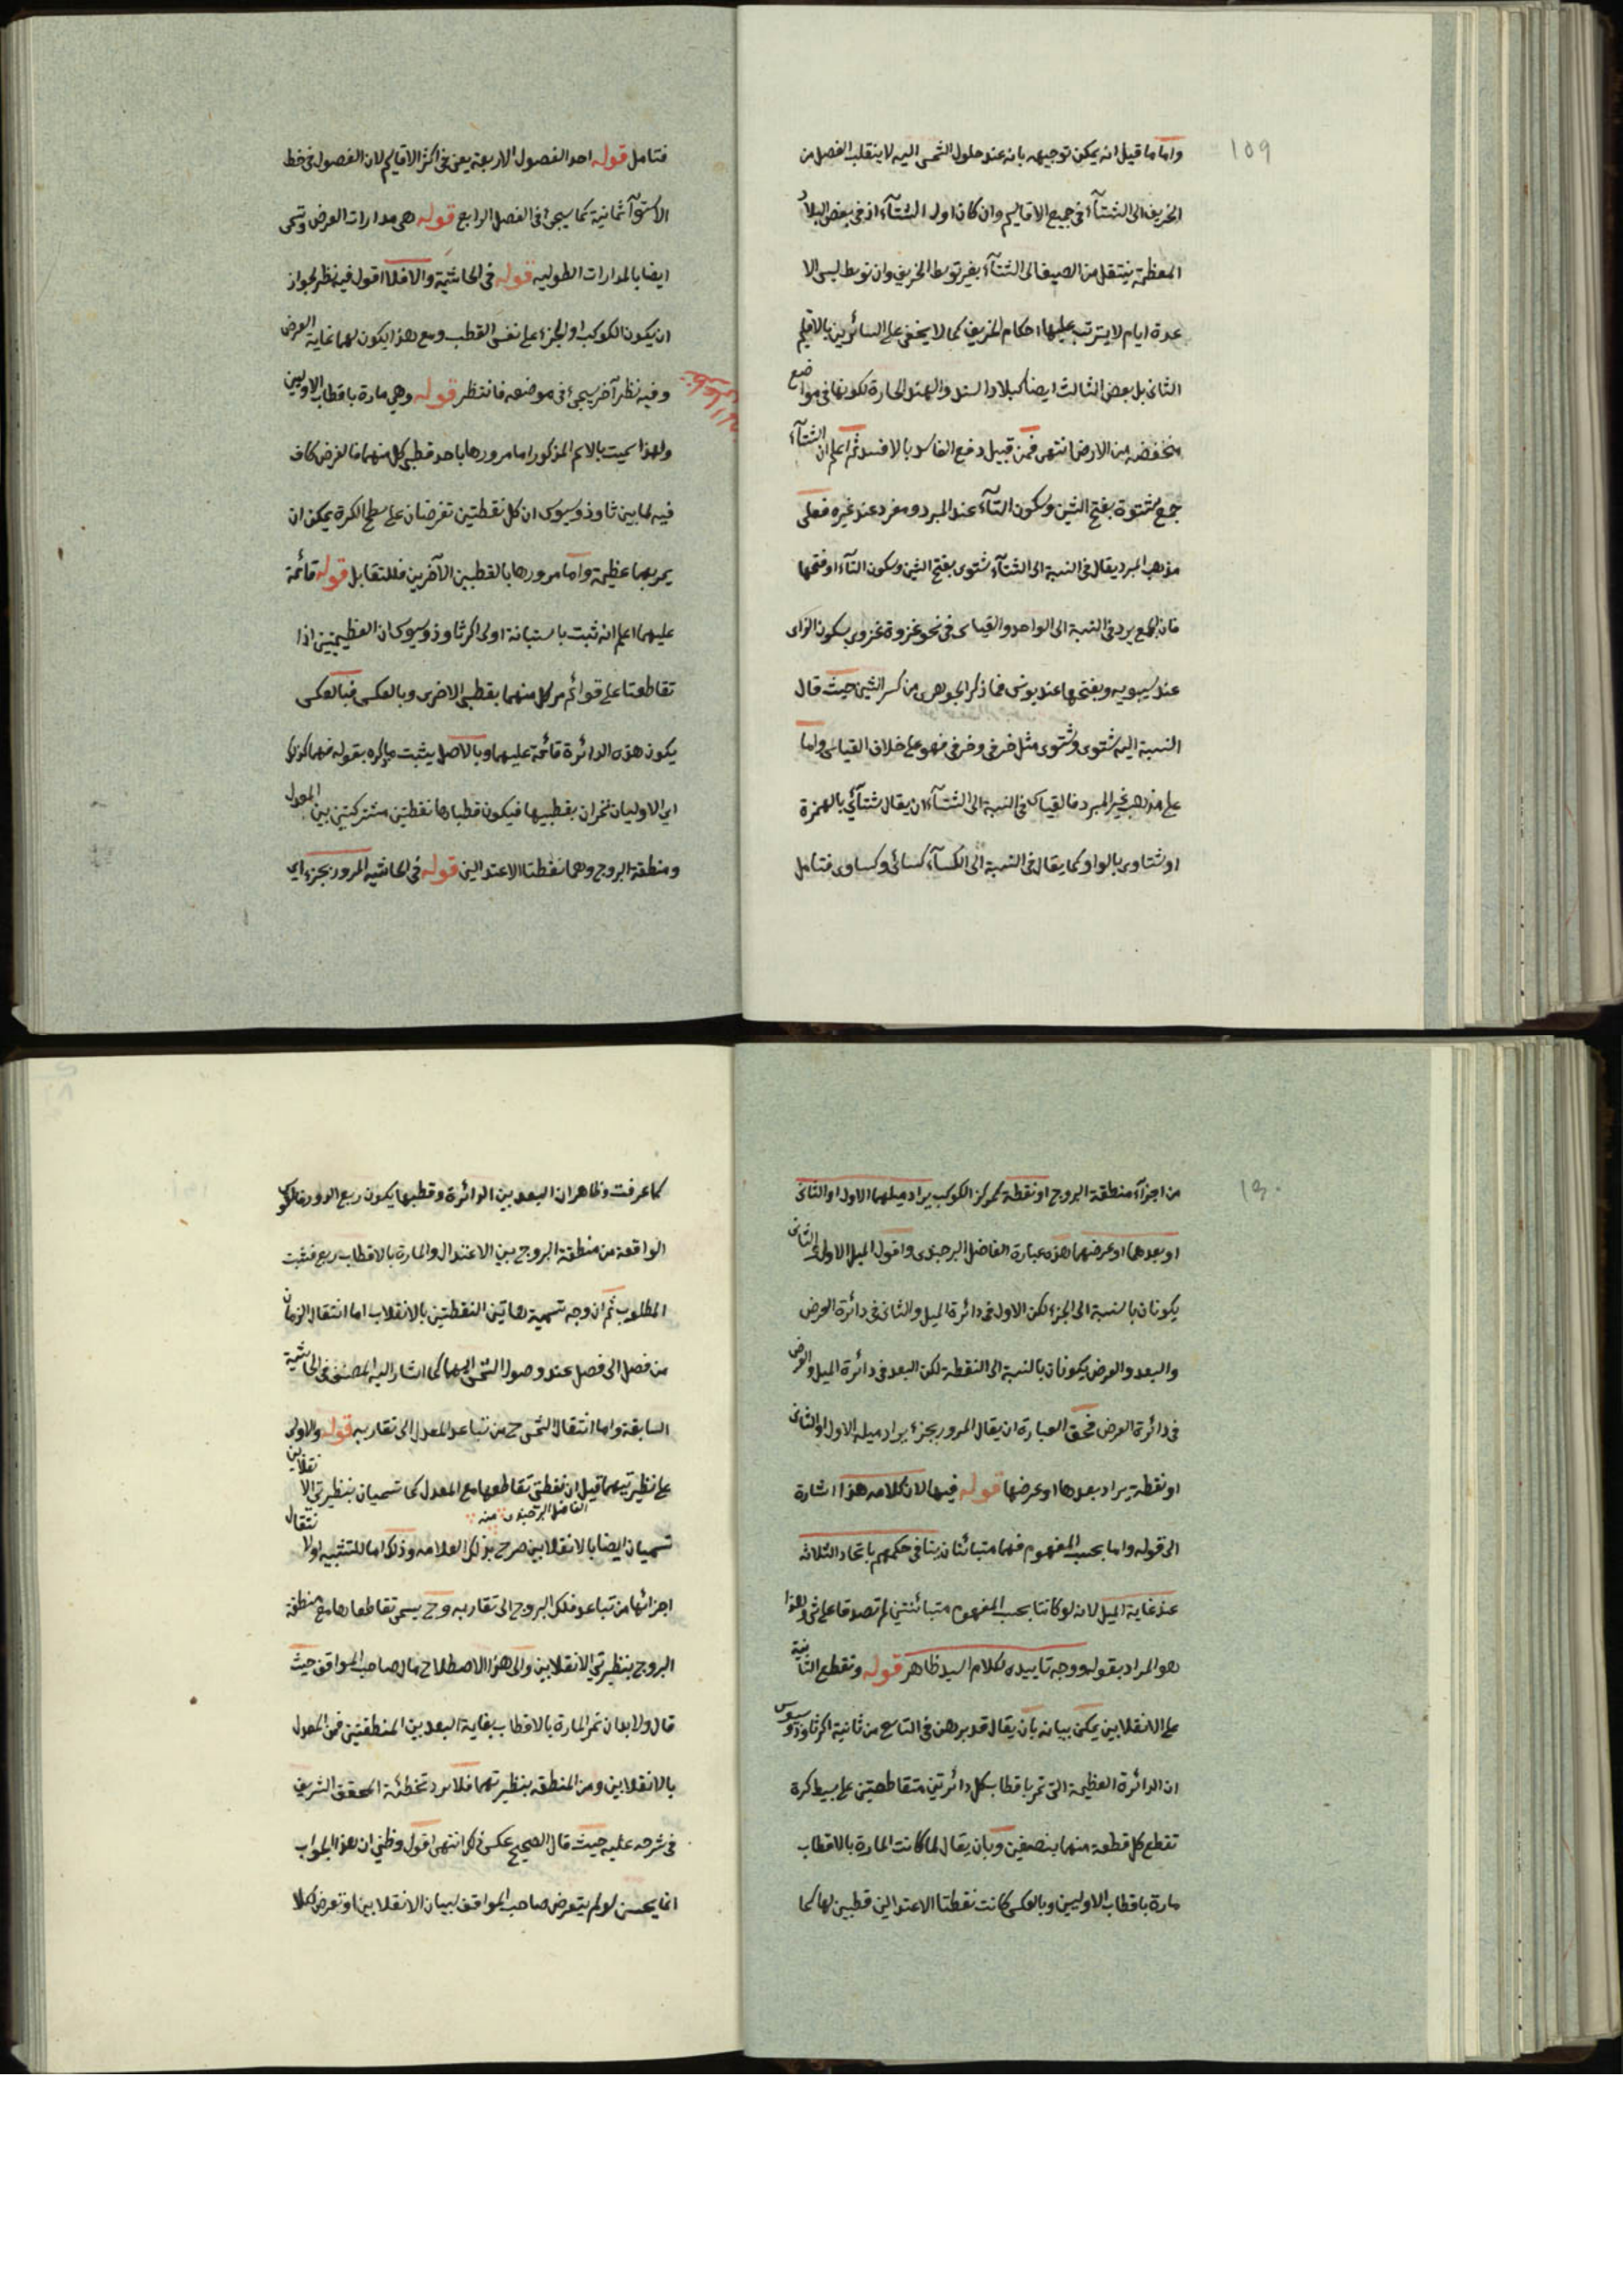 ١٥٩
واما ما قيل انه يمكن توجيهه بانه عند حلول الشمس اليه لا ينقلب الفصل من
الخريف الى الشتآء في جميع الاقاليم وان كان اول الشتآء اذ في بعض البلاد
المعظمة ينتقل من الصيف الى الشتآء بغير توسط الخريف وان توسط ليس الا
عدة ايام لا يترتب عليها احكام الخريف كما لا يخفى على السائرين بالاقليم
الثاني بل بعض الثالث ايضا كبلاد السند والهند الحارة لكونها في مواضع
منخفضة من الارض انتهى فمن قبيل دفع الفاسد بالافسد ثم اعلم ان الشتآء
جمع شتوة بفتح الشين وسكون التآء عند المبرد ومفرد عند غيره فعلى
مذهب المبرد يقال في النسبة الى الشتآء شتوى بفتح الشين وسكون التآء او فتحها
فان الجمع يرد في النسبة الى الواحد والقياس في نحو غزوة غزوي بسكون الزاى
عند سيبويه وبفتحها عند يونس فما ذكر الجوهرى من كسر الشين حيث قال
النسبة اليه شتوى وشتوى مثل خرفى وخرفى فهو على خلاف القياس واما
على مذهب غير المبرد فالقياس في النسبة الى الشتآء ان يقال شتآئي بالهمزة
او شتاوى بالواو كما يقال في النسبة الى الكسآء كسائى وكساوى فتامل
فتامل قوله احد الفصول الاربعة يعنى في اكثر الاقاليم لان الفصول في خط
الاستوآ ثمانية كما سيجئ في الفصل الرابع قوله هى مدارات العرض وتسمى
ايضا بالمدارات الطوليه قوله في الحاشية والا فلا اقول فيه نظر لجواز
ان يكون الكوكب او الجزء على نفس القطب ومع هذا يكون لهما غاية العرض
وفيه نظر آخر سيجئ في موضعه فانتظر قوله وهي مارة باقطاب الاوليين
ولهذا سميت بالاسم المذكور اما مرورها باحد قطبى كل منهما فالفرض كاف
فيه لما بين ثاوذوسيوس ان كل نقطتين تفرضان على سطح الكرة يمكن ان
يمر بهما عظيمة واما مرورها بالقطبين الآخرين فللتقابل قوله قائمة
عليهما اعلم انه ثبت باستبانة اولى اكر ثاوذوسيوس ان العظيمتين اذا
تقاطعتا على قوائم مر كل منهما بقطبى الاخرى وبالعكس فبالعكس
يكون هذه الدائرة قائمة عليهما وبالاصل يثبت ما ذكره بقوله فهما كذلك
اي الاوليان تمران بقطبيها فيكون قطباها نقطتين مشتركتين بين المعدل
ومنطقة البروج وهما نقطتا الاعتدالين قوله في الحاشيه المرور بجزء اي
١٦٠
من اجزآء منطقة البروج او نقطة كمركز الكوكب يراد ميلهما الاول او الثانى
او بعدهما او عرضهما هذه عبارة الفاضل البرجندى واقول الميل الاول والثانى
يكونان بالنسبة الى الجزء لكن الاول في دائرة الميل والثانى في دائرة العرض
والبعد والعرض يكونان بالنسبة الى النقطة لكن البعد في دائرة الميل والعرض
في دائرة العرض فحق العبارة ان يقال المرور بجزء يراد ميله الاول او الثانى
او نقطة يراد بعدها او عرضها قوله فيها لان كلامه هذا اشارة
الى قوله واما بحسب المفهوم فهما متبائنان ينافى حكمهم باتحاد الثلاثه
عند غاية الميل لانه لو كانتا بحسب المفهوم متبائنتين لم تصدقا على شئ وهذا
هو المراد بقوله ووجه تاييده لكلام السيد ظاهر قوله وتقطع الثانية
على الانقلابين يمكن بيانه بان يقال قد برهن في التاسع من ثانية اكر ثاوذوسيوس
ان الدائرة العظيمة التى تمر باقطاب كل دائرتين متقاطعتين على بسيط كرة
تقطع كل قطعة منهما بنصفين وبان يقال لما كانت المارة بالاقطاب
مارة باقطاب الاوليين وبالعكس كانت نقطتا الاعتدالين قطبين لها كما
كما عرفت وظاهر ان البعد بين الدائرة وقطبها يكون ربع الدور فالقوس
الواقعة من منطقة البروج بين الاعتدال والمارة بالاقطاب ربع فثبت
المطلوب ثم ان وجه تسمية هاتين النقطتين بالانقلاب اما انتقال الزمان
من فصل الى فصل عند وصول الشمس اليهما كما اشار اليه المصنف في الحاشية
السابقة واما انتقال الشمس ح من تباعد المعدل الى تقاربه قوله والاولى
على نظيرتيهما قيل ان نقطتى تقاطعها مع المعدل كما تسميان بنظيرتي الانقلابين
الفاضل البرجندى منه
تسميان ايضا بالانقلابين صرح بذلك العلامه وذلك اما للتشبيه او لانتقال
اجزائها من تباعد فلك البروج الى تقاربه وح يسمى تقاطعاها مع منطقة
البروج بنظيرتي الانقلابين والى هذا الاصطلاح مال صاحب المواقف حيث
قال ولا بد ان تمر المارة بالاقطاب بغاية البعد بين المنطقتين فمن المعدل
بالانقلابين ومن المنطقه بنظيرتهما فلا يرد تخطئة المحقق الشريف
في شرحه عليه حيث قال الصحيح عكس ذلك انتهى اقول وظني ان هذا الجواب
انما يحسن لو لم يتعرض صاحب المواقف لبيان الانقلابين او تعرض لكلا